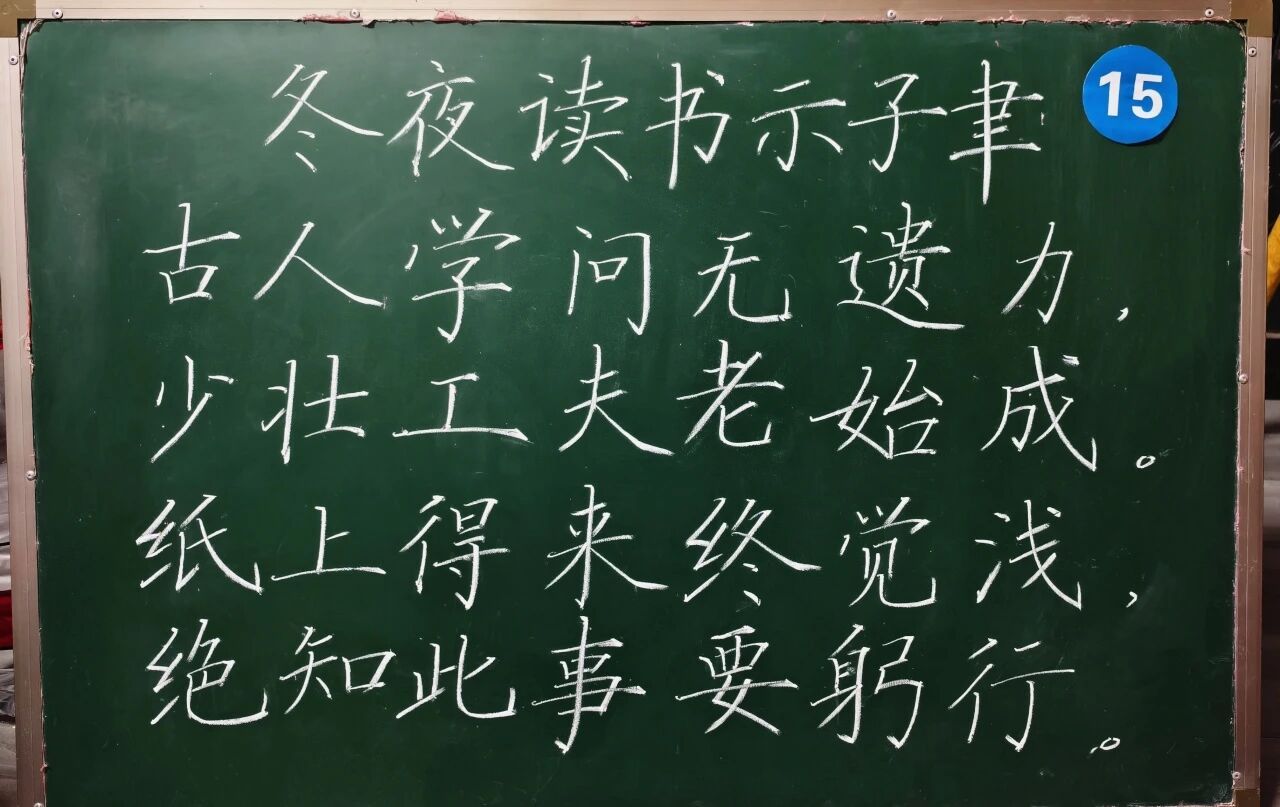 冬夜读书示子聿
15
古人学问无遗力，
少壮工夫老始成。
纸上得来终觉浅，
绝知此事要躬行。